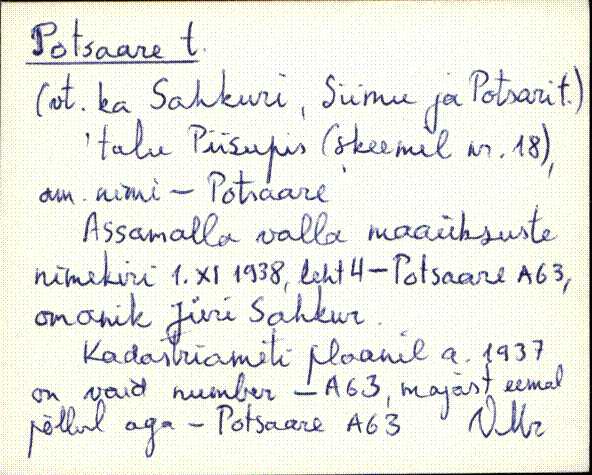 Potsaare t.
(vt. ka Sahkuri, Siimu ja Potsari t.)
'talu Piisupis (skeemil nr. 18),
am. nimi – Potsaare
Assamalla valla maaüksuste
nimekiri 1. XI 1938, leht 4 – Potsaare A63,
omanik Jüri Sahkur.
Kadastriameti plaanil a. 1937
on vaid number – A63, majast eemal
põllul aga – Potsaare A63 VMr